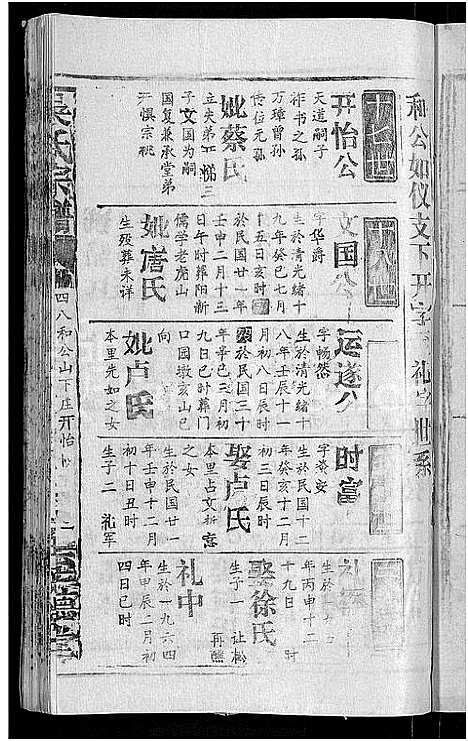 和公如仪支下开字 礼字世系
十七世
开怡公
天道嗣子
祚书之孙
万璋曾孙
传位元孙
妣蔡氏
立夫弟 悌三
子文国为嗣
国复兼承堂弟
惧宗祧
十八世
文国公
字华爵
生於清光绪十
九年癸巳七月
十五日亥时
於民国廿一年
壬申二月十三
日午时葬阳新
儒学老虎山
妣唐氏
生殁葬未详
运遂公
字畅然
生於清光绪十
八年壬辰十一
月初八日辰时
於民国三十
年辛巳三月初
九日巳时葬门
口园墩亥山巳
向
妣卢氏
本里先如之女
时富
字善安
生於民国十二
年癸亥十二月
初三日辰时
娶卢氏
本里占文
之女
生於民国廿一
年壬申十二月
初十日丑时
生子二 礼军
礼
生於一九
年丙申十二
十九日 时
娶徐氏
生子一 让松
再醮
礼中
生於一九六四
年甲辰二月初
四日巳时
吴氏宗谱
四八和公山下庄开怡